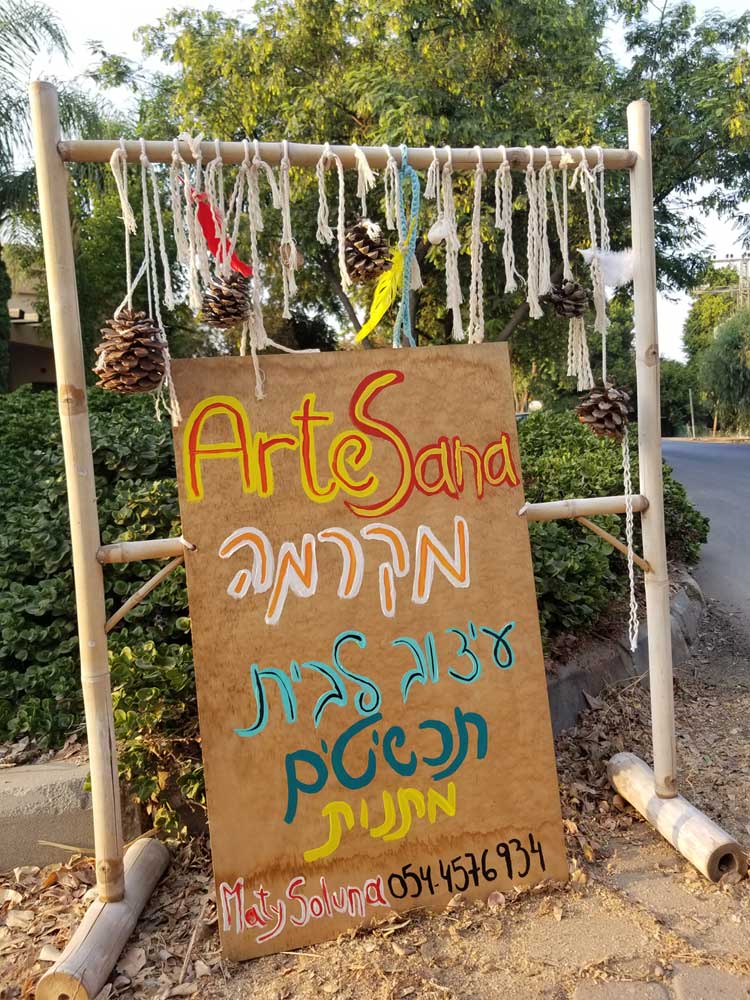 ArteSana
מקרמה
עיצוב לבית
תכשיטים
מתנות
Maty Soluna 054.4576934